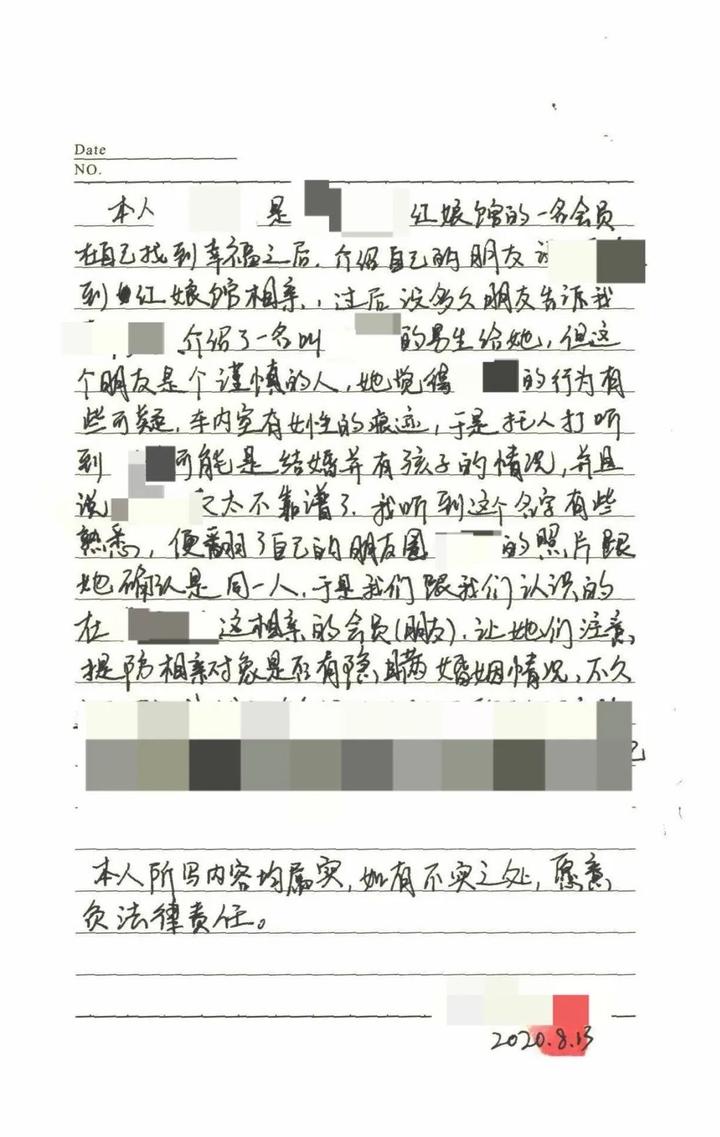 Date
NO.
本人 是 红娘馆的一名会员
在自己找到幸福之后,介绍自己的朋友
到红娘馆相亲,过后没多久朋友告诉我
介绍了一名叫 的男生给她,但这
个朋友是个谨慎的人,她觉得 的行为有
些可疑,车内室有女性的痕迹,于是托人打听
到 可能是结婚并有孩子的情况,并且
说 太不靠谱了.我听到这个名字有些
熟悉,便翻了自己的朋友圈 的照片跟
她确认是同一人,于是我们跟我们认识的
在 这相亲的会员(朋友),让她们注意,
提防相亲对象是否有隐瞒婚姻情况,不久
本人所写内容均属实,如有不实之处,愿意
负法律责任。
2020.8.13